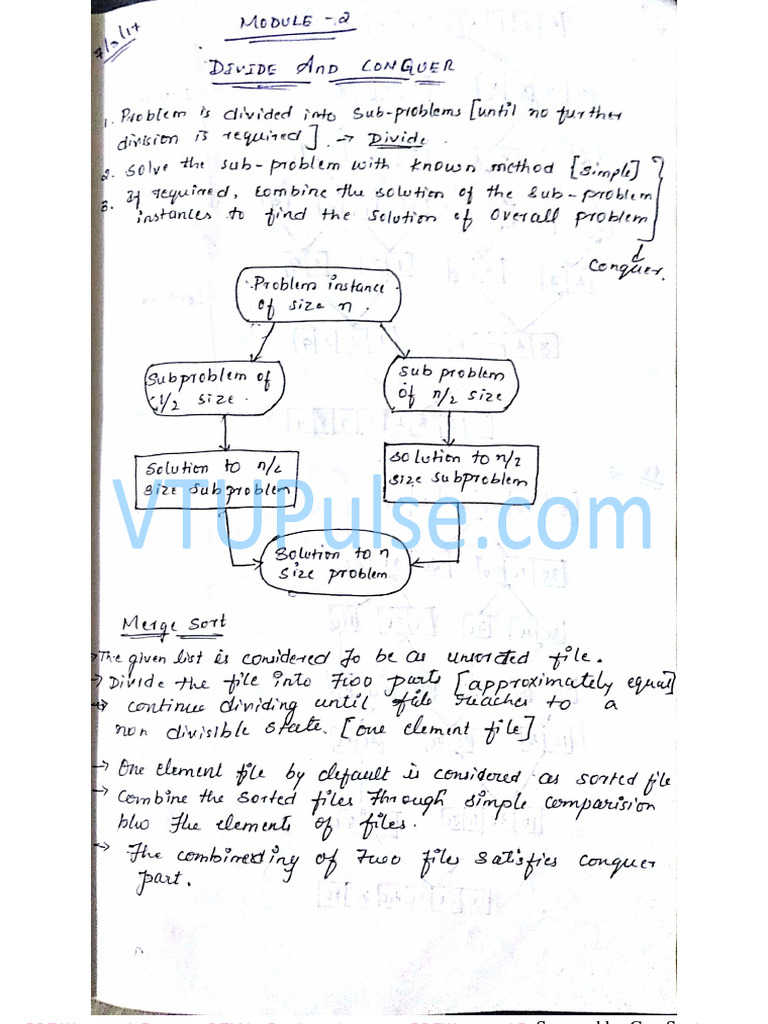 7/3/17
MODULE - 2
DIVIDE AND CONQUER
1. Problem is divided into sub-problems [until no further
division is required] → Divide
2. Solve the sub-problem with known method [simple]
3. If required, combine the solution of the sub-problem
instances to find the solution of overall problem
Conquer.
Problem instance
of size n.
Subproblem of
1/2 size.
Sub problem
of n/2 size
Solution to n/2
size subproblem
Solution to n/2
size subproblem
VTUPulse.com
Solution to n
size problem
Merge Sort
→ The given list is considered to be as unsorted file.
→ Divide the file into two parts [approximately equal]
→ continue dividing until file reaches to a
non divisible state. [one element file]
→ One element file by default is considered as sorted file
→ Combine the sorted files through simple comparision
b/w the elements of files.
→ The combineding of two files satisfies conquer
part.